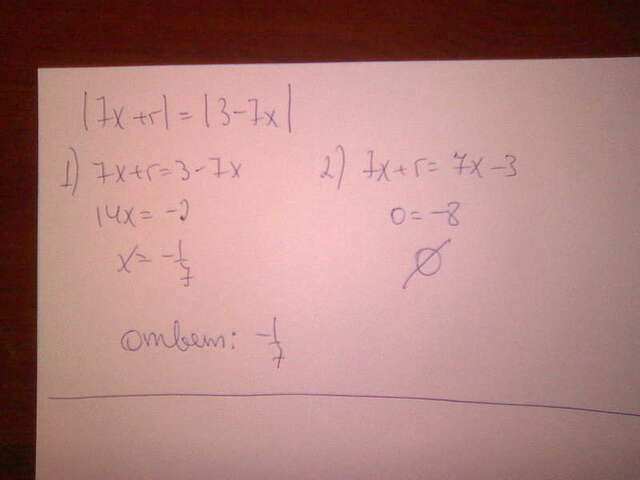 |7x+5|=|3-7x|
1) 7x+5=3-7x
14x=-2
x=-1/7
2) 7x+5=7x-3
0=-8
∅
ответ: -1/7